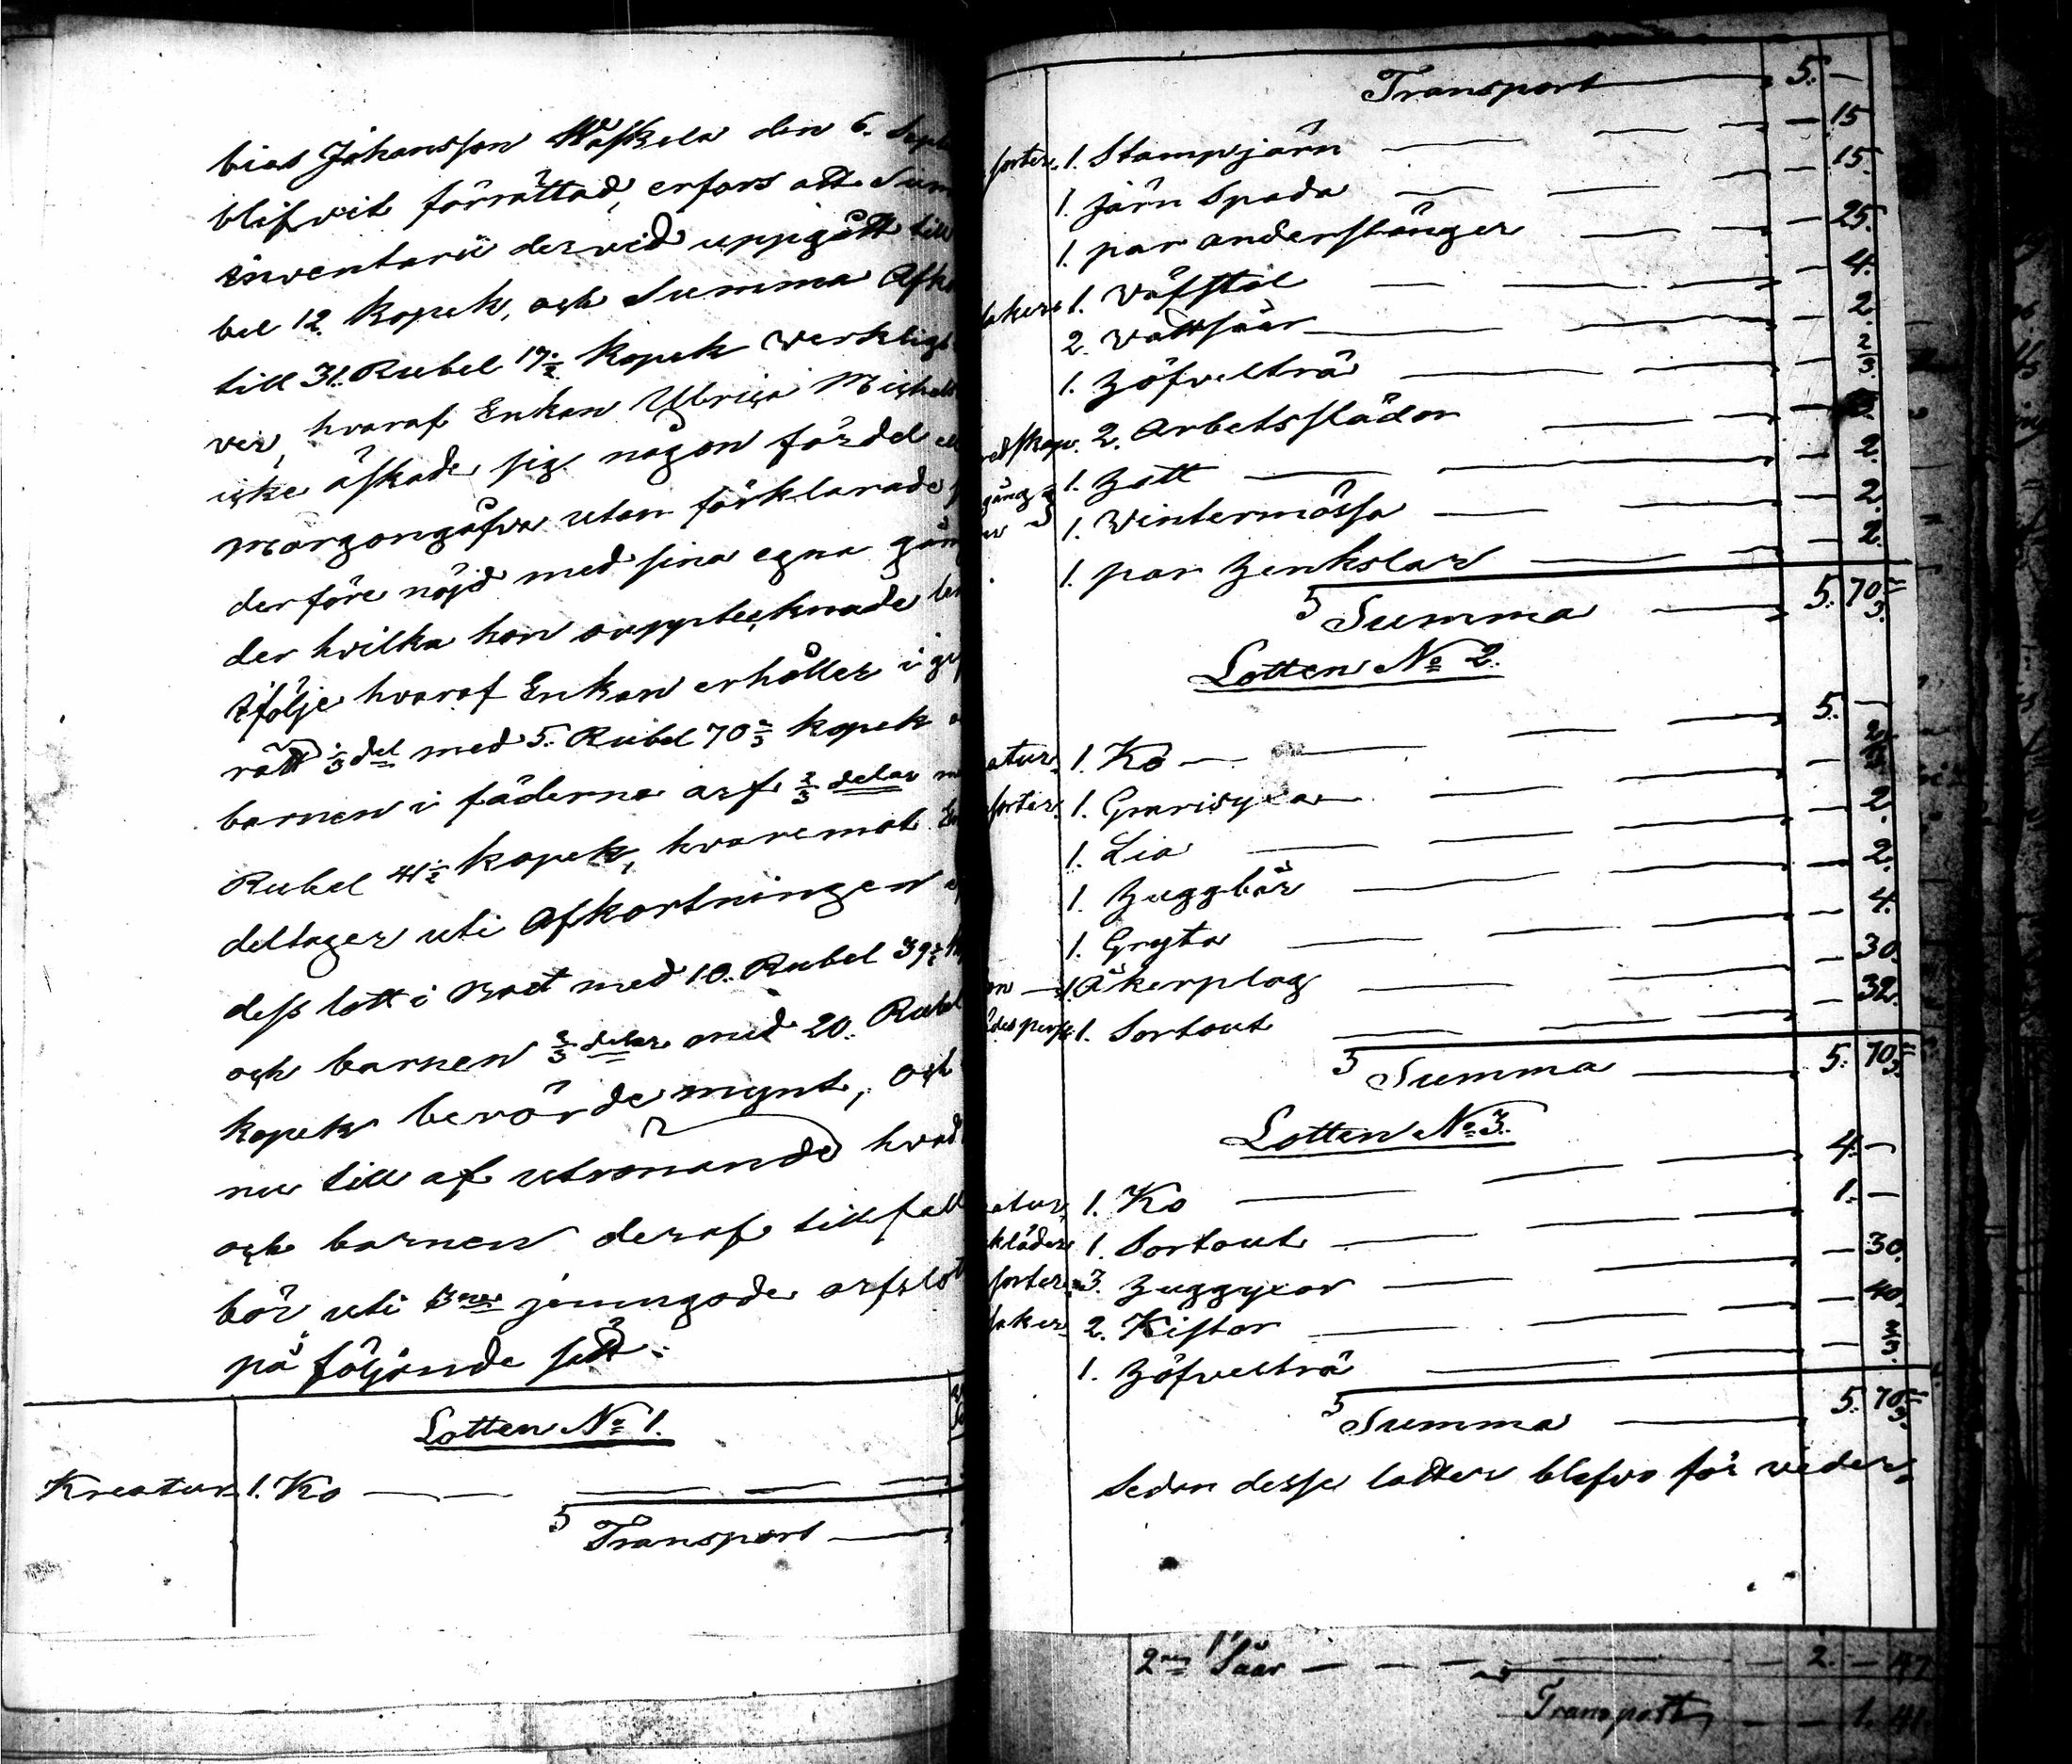 bias Johansson den 6. Sept
blifvit förrättad, erfars att Sum
inventarii dervid uppgått till
bel 12 Kopek, och Summa Afk
till 31. Rubel 17½ Kopek Verkligt
ver, hvaraf Enkan Ulrica Michels
icke äskade sig någon fördel ell
morgongåfva utan förklarade
derföre nöjd med sina egna gån
der hvilka hon oupptecknade
Ifölje hvaraf Enkan erhåller i
rätt ⅓ del med 5. Rubel 70⅔ kopek
barnen i fäderne arf ⅔ delar
Rubel 41½ kopek, hvaremot En
deltager uti Afkortningen
dess lott i Boet med 10. Rubel 39
och barnen ⅔ delar med 20. Rubel
kopek berörde mynt, och
nu till af utronande hvad
och barnen deraf tillfall
bör uti 3ne jemngode arfslot
på följande sätt:
Lotten No 1.
Kreatur 1. Ko
Transport
Transport 5. —
sorter. 1. Stampjärn — 15
1. järn Spada — 15.
1. par anderstänger — 25.
saker. 1. Väfstol — 4.
2. Vattsåar — 2.
1. Höfvelträ — ⅔.
redskap. 2. Arbetsslädor
gång 1. Hatt — 2.
1. Vintermössa — 2.
1. par Henkslar — 2.
Summa 5. 70⅔.
Lotten No 2.
atur. 1. Ko 5. —
sorter. 1. ⅔
1. Lia — 2.
1. Huggbår — 2.
1. Gryta — 4.
1. Åkerplog — 30.
1. Sortout — 32.
Summa 5. 70⅔.
Lotten No 3.
atur. 1. Ko 4. —
kläder. 1. Sortout 1. —
sorter. 3. Huggyxor — 30.
saker. 2. Kistor — 40.
1. Höfvelträ — ⅔.
Summa 5. 70⅔.
Sedan desse lotter blefvo för veder
2ne Såar — 2. — 47
Transport — 1. 41.